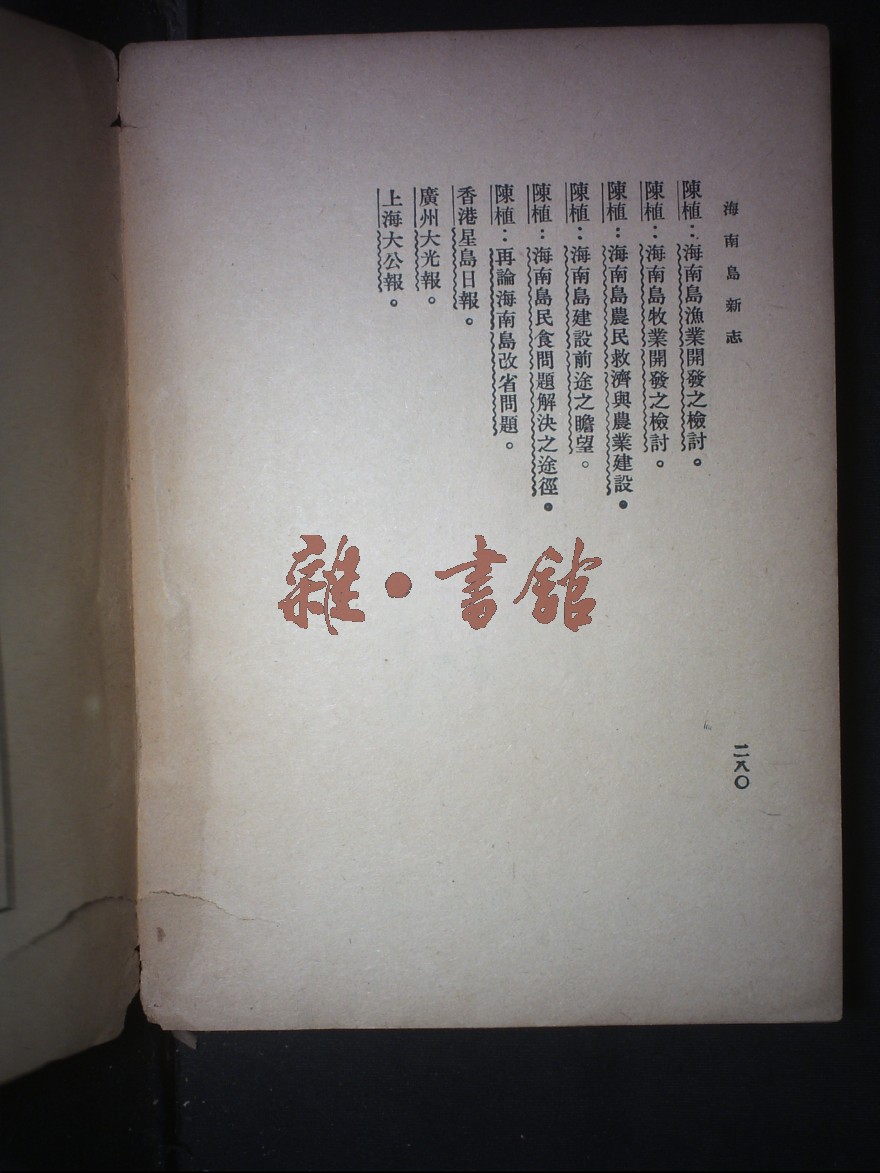 海南島新志
陳植：海南島漁業開發之檢討。
陳植：海南島牧業開發之檢討。
陳植：海南島農民救濟與農業建設。
陳植：海南島建設前途之瞻望。
陳植：海南島民食問題解決之途徑。
陳植：再論海南島改省問題。
香港星島日報。
廣州大光報。
上海大公報。
二八〇
雜·書館